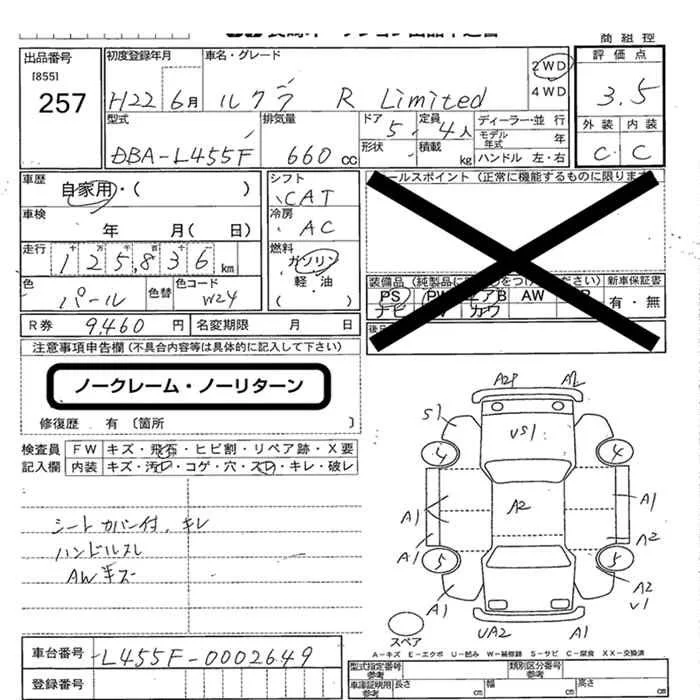 商 組 控
出品番号
[855]
257
初度登録年月
H22 6月
車名・グレード
ルクラ R Limited
2WD
4WD
評 価 点
3.5
外 装 内 装
C C
型式
DBA-L455F
排気量
660 cc
ドア
5
定員
4人
形状
積載
kg
ディーラー・並 行
モデル年式 年
ハンドル 左・右
車歴
自家用・( )
車検
年 月( 日)
走行
125,836 km
色
パール
色替
色コード
W24
シフト
CAT
冷房
AC
燃料
ガソリン
軽 ・ 油
( )
ールスポイント (正常に機能するものに限ります
装備品 (純製品に
をつけ
ださい)
新車保証書
PS
AW
有 ・ 無
ナビ
カワ
R 券 9,460 円
名変期限 月 日
注意事項申告欄 (不具合内容等は具体的に記入して下さい)
ノークレーム・ノーリターン
修復歴 有 〔箇所 〕
検査員
記入欄
FW キズ・飛石・ヒビ割・リペア跡・X要
内装 キズ・汚レ・コゲ・穴・スレ・キレ・破レ
シートカバー付、キレ
ハンドルスレ
AWキズ
A2P
A2
S1
US1
4
4
A2
A1
A1
A1
A2
5
5
A1
A2
U1
UA2
A1
スペア
A-キズ E-エクボ U-凹み W-補修跡 S-サビ C-腐食 XX-交換済
車台番号
L455F-0002649
登録番号
型式指定番号
参考
類別区分番号
参考
車庫証明用
参考
長さ cm
幅 cm
高さ cm